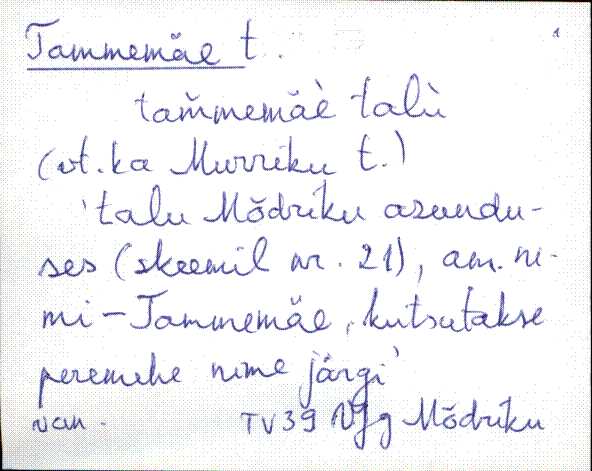 Tammemäe t.
1
tam̆memäè talù
(vt. ka Murriku t.)
'talu Mõdriku asundu-
ses (skeemil nr. 21), am. ni-
mi - Tammemäe, kutsutakse
peremehe nime järgi'
van. TV39 VJg Mõdriku